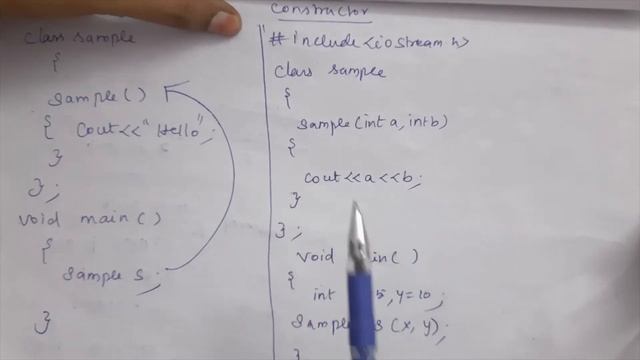 Constructor
class sample
{
sample()
{ Cout<<"Hello";
}
};
void main()
{
sample s;
}
# include <iostream.h>
class sample
{
sample(int a, int b)
{
cout<<a<<b;
}
};
void main()
{
int 5, y=10;
sample s (x, y);
}